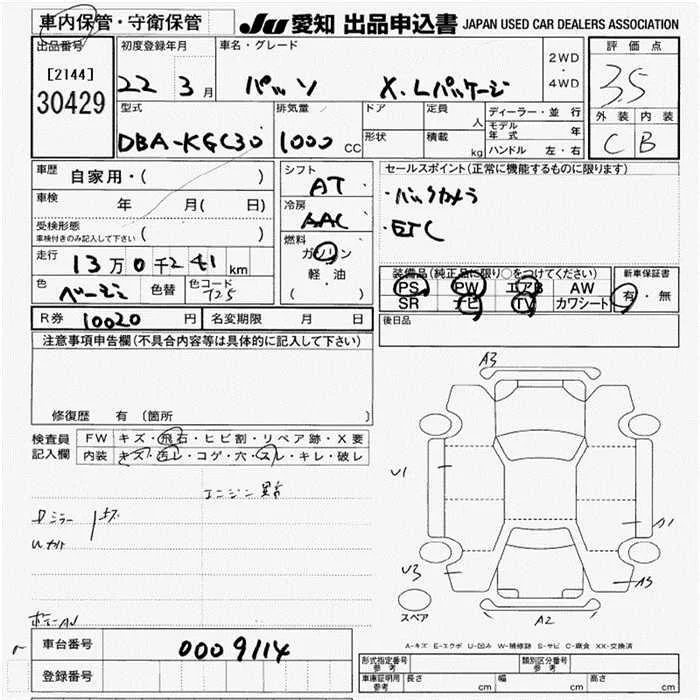 車内保管・守衛保管
JU 愛知 出品申込書 JAPAN USED CAR DEALERS ASSOCIATION
出品番号
[2144]
30429
初度登録年月
22 3月
車名・グレード
パッソ X.Lパッケージ
2WD
・
4WD
評価点
3.5
外装 内装
C B
型式
DBA-KGC30
排気量
1000 CC
ドア
形状
定員 人
積載 kg
ディーラー・並行
モデル年式 年
ハンドル 左・右
車歴
自家用・( )
車検 年 月( 日)
受検形態
車検付きのみ記入して下さい ( )
走行
13万0千241km
色
ベージュ
色替
色コード
T25
シフト
AT
冷房
AAC
燃料
ガソリン
軽・油
( )
セールスポイント(正常に機能するものに限ります)
・バックカメラ
・ETC
装備品(純正品に限り○をつけてください)
PS PW エアB AW
SR ナビ TV カワシート
新車保証書
有・無
R券 10020 円
名変期限 月 日
後日品
注意事項申告欄(不具合内容等は具体的に記入して下さい)
修復歴 有 〔箇所 〕
検査員
記入欄
FW キズ・飛石・ヒビ割・リペア跡・X要
内装 キズ・汚レ・コゲ・穴・スレ・キレ・破レ
エンジン異音
ミラー
A3
U1
A1
U3
A5
A2
スペア
A-キズ E-エクボ U-凹み W-補修跡 S-サビ C-腐食 XX-交換済
車台番号 0009114
登録番号
形式指定番号
参考
類別区分番号
参考
車庫証明用
参考
長さ cm
幅 cm
高さ cm